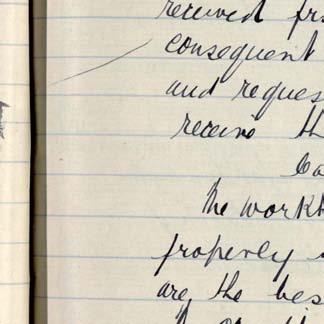 received fr
consequent
and reques
receive th
ca
the workh
properly
are the bes